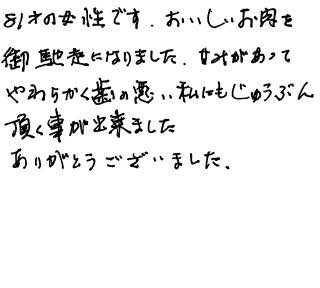 81才の女性です．おいしいお肉を
御馳走になりました．甘みがあって
やわらかく歯の悪い私にもじゅうぶん
頂く事が出来ました
ありがとうございました．